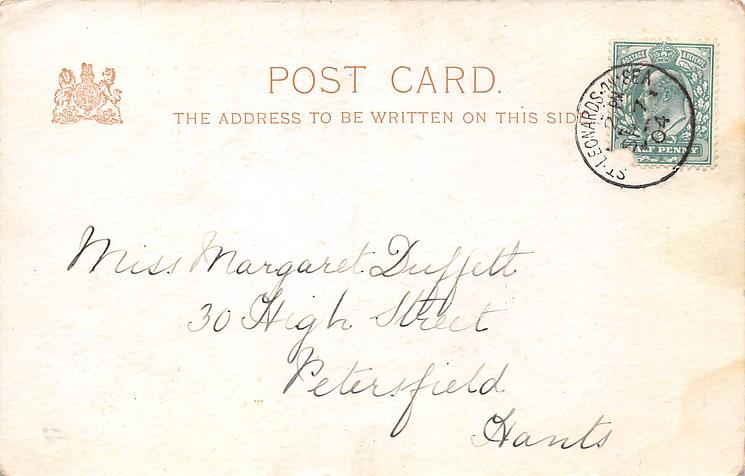 POST CARD.
THE ADDRESS TO BE WRITTEN ON THIS SID
POSTAGE REVENUE
HALF PENNY
ST. LEONARDS-ON-SEA
04
Miss Margaret Duffett
30 High Street
Petersfield
Hants